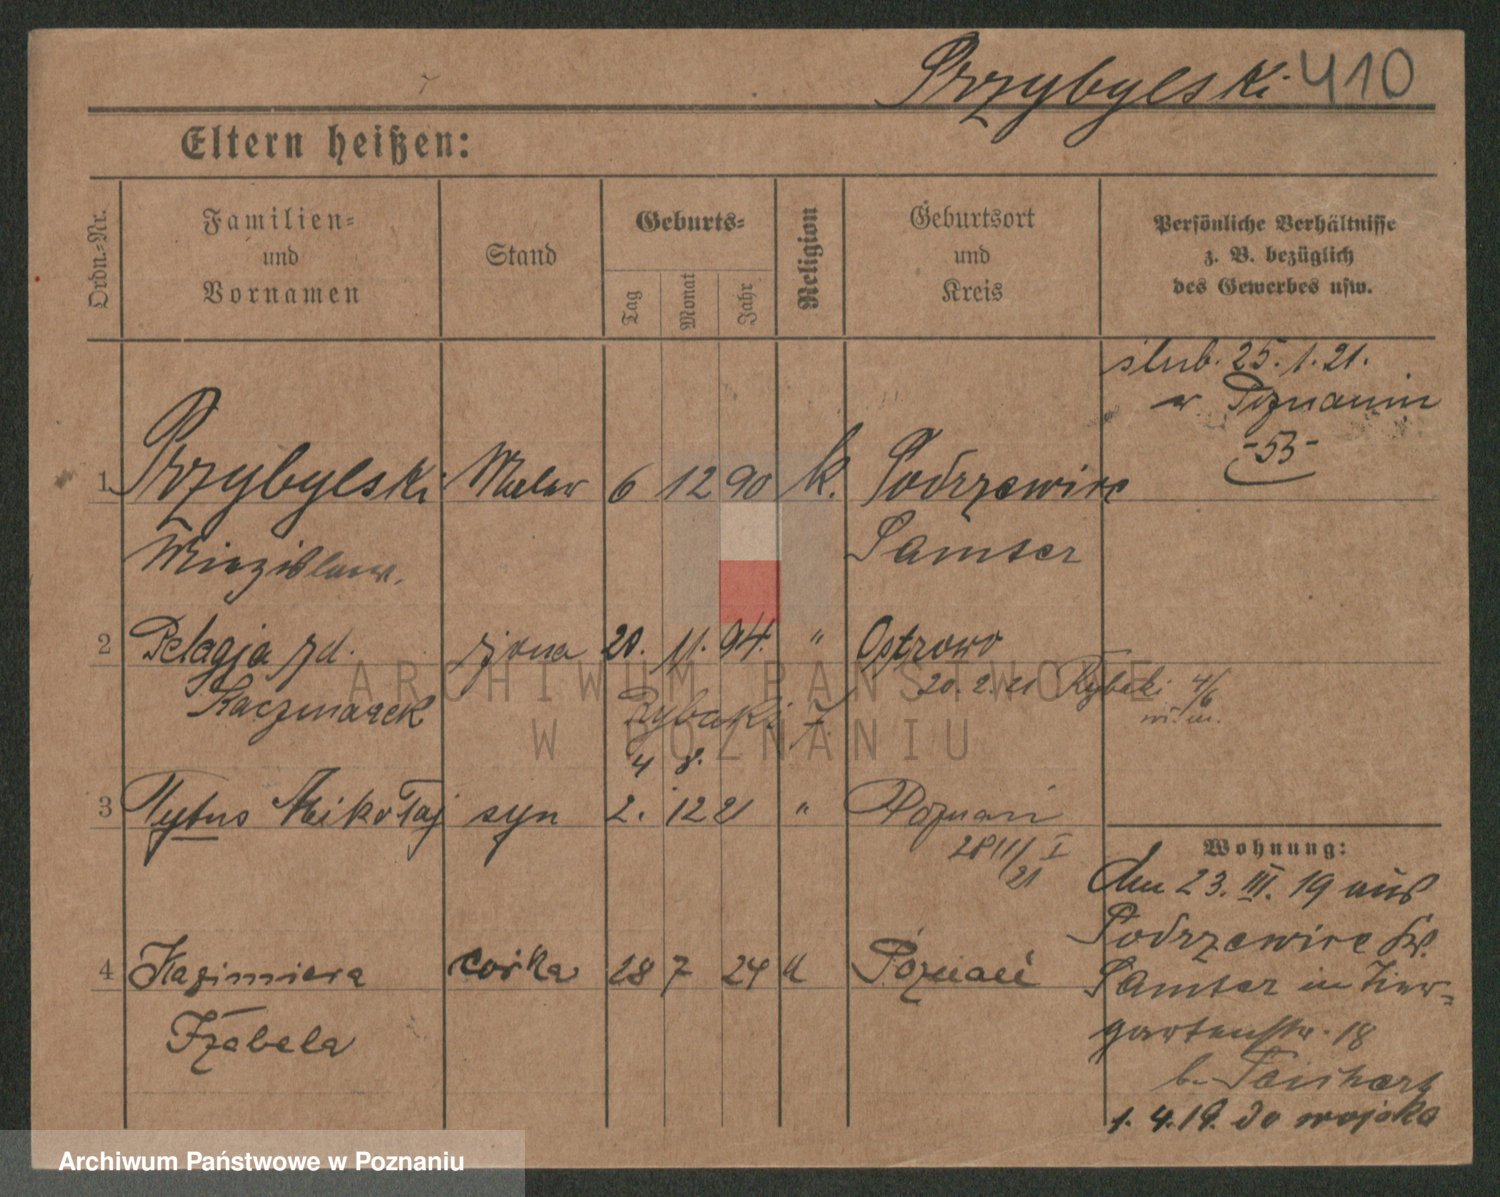 Przybylski 410
Eltern heißen:
Ordn.-Nr.
Familien-
und
Vornamen
Stand
Geburts-
Tag
Monat
Jahr
Religion
Geburtsort
und
Kreis
Persönliche Verhältnisse
z. B. bezüglich
des Gewerbes usw.
ślub. 25.1.21.
w Poznaniu
-53-
1 Przybylski Maler 6 12 90 k. Podrzewice
Samter
2 Pelagja zd. żona 20. 11. 94. " Ostrowo
Kaczmarek
20.2.21 Rybaki 4/6
Rybaki 7
4 8.
3 Tytus Mikołaj syn 2. 12 21 " Poznań
28 11/21 I
Wohnung:
den 23. III. 19 aus
Podrzewice Kr.
4 Kazimiera córka 28 7 24 " Poznań
Samter in Tier-
Izabela
gartenstr. 18
b.
1.4.19. do wojska
ARCHIWUM PAŃSTWOWE
W POZNANIU
Archiwum Państwowe w Poznaniu